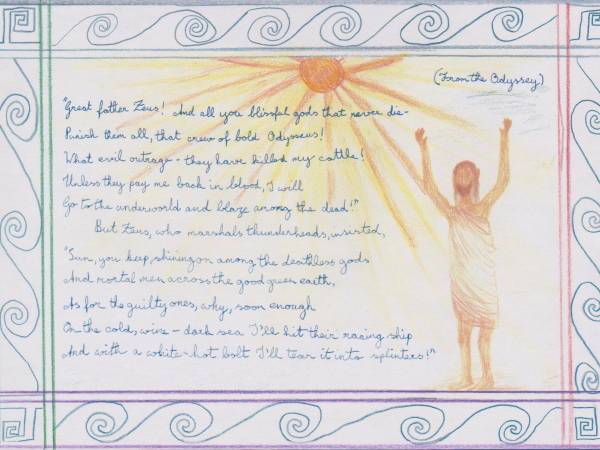 (From the Odyssey)
"Great father Zeus! And all you blissful gods that never die-
Punish them all, that crew of bold Odysseus!
What evil outrage - they have killed my cattle!
Unless they pay me back in blood, I will
Go to the underworld and blaze among the dead!"
But Zeus, who marshals thunderheads, insisted,
"Sun, you keep shining on among the deathless gods
And mortal men across the good green earth,
As for the guilty ones, why, soon enough
On the cold, wine - dark sea I'll hit their racing ship
And with a white-hot bolt I'll tear it into splinters!"